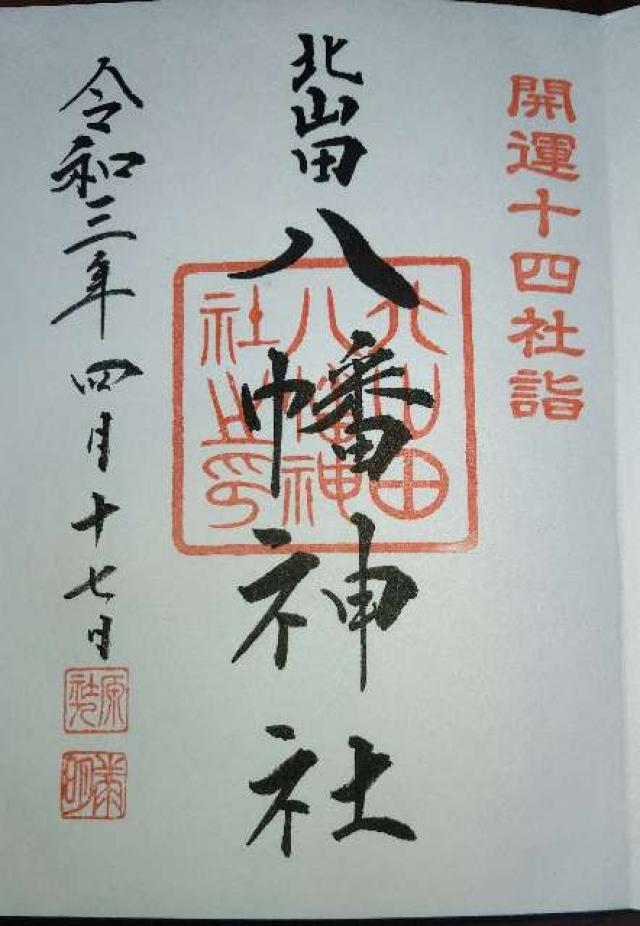 開運十四社詣
北山田
八幡神社
北山田八幡神社之印
令和三年四月十七日